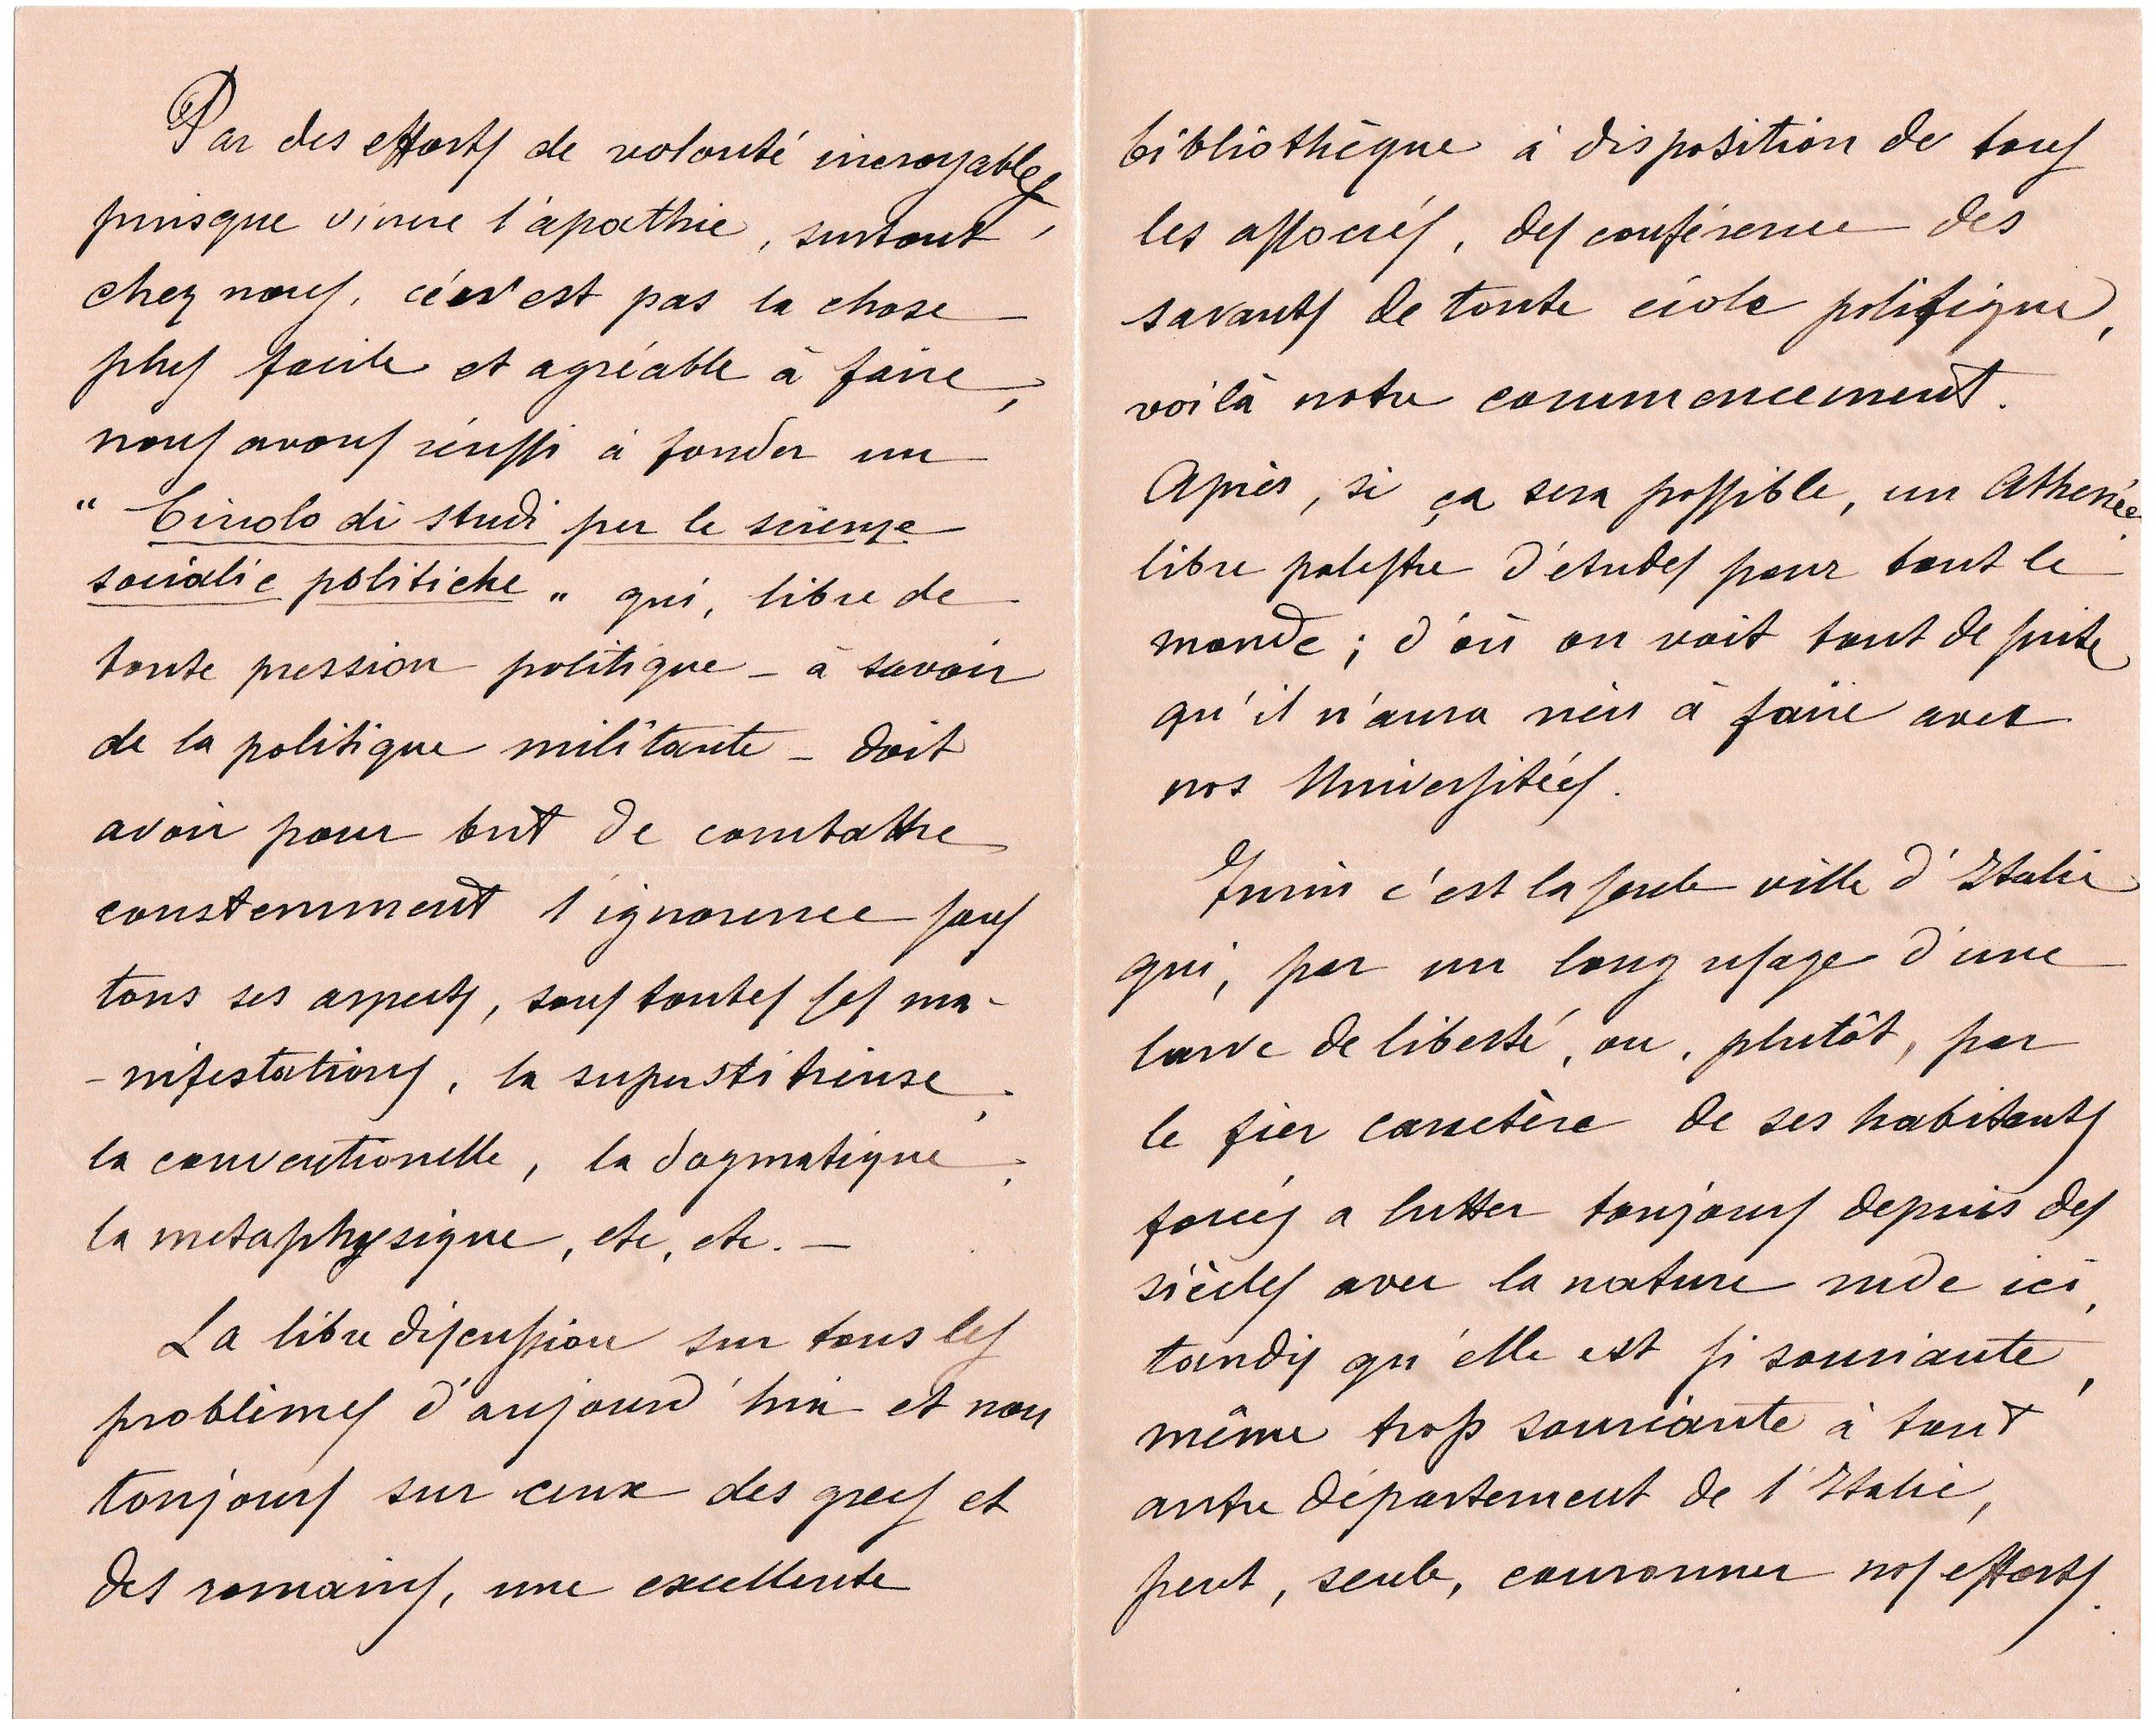 Par des efforts de volonté incroyables,
puisque vincre l'apathie, surtout
chez nous, ce n'est pas la chose
plus facile et agréable à faire,
nous avons réussi à fonder un
" Circolo di studi per le scienze
sociali e politiche " qui, libre de
toute pression politique - à savoir
de la politique militante - doit
avoir pour but de combattre
constemment l'ignorence sous
tous ses aspects, sous toutes ses ma-
-nifestations, la superstitieuse,
la conventionelle, la dogmatique,
la metaphysique, etc, etc. -
La libre discussion sur tous les
problèmes d'aujourd'hui et non
toujours sur ceux des grecs et
des romains, une excellente
bibliothèque à disposition de tous
les associés, des conférence des
savants de toute école politique,
voilà notre commencement.
Après, si ça sera possible, un Athenée
libre palestre d'études pour tout le
monde ; d'où on voit tout de suite
qu'il n'aura rien à faire avec
nos Universitées.
Turin c'est la seule ville d'Italie
qui, par un long usage d'une
larve de liberté, ou, plutôt, par
le fier caractère de ses habitants
forcés a lutter toujours depuis des
siècles avec la nature rude ici,
tandis qu'elle est si souriante,
même trop souriante à tout
autre département de l'Italie,
peut, seule, couronner nos efforts.